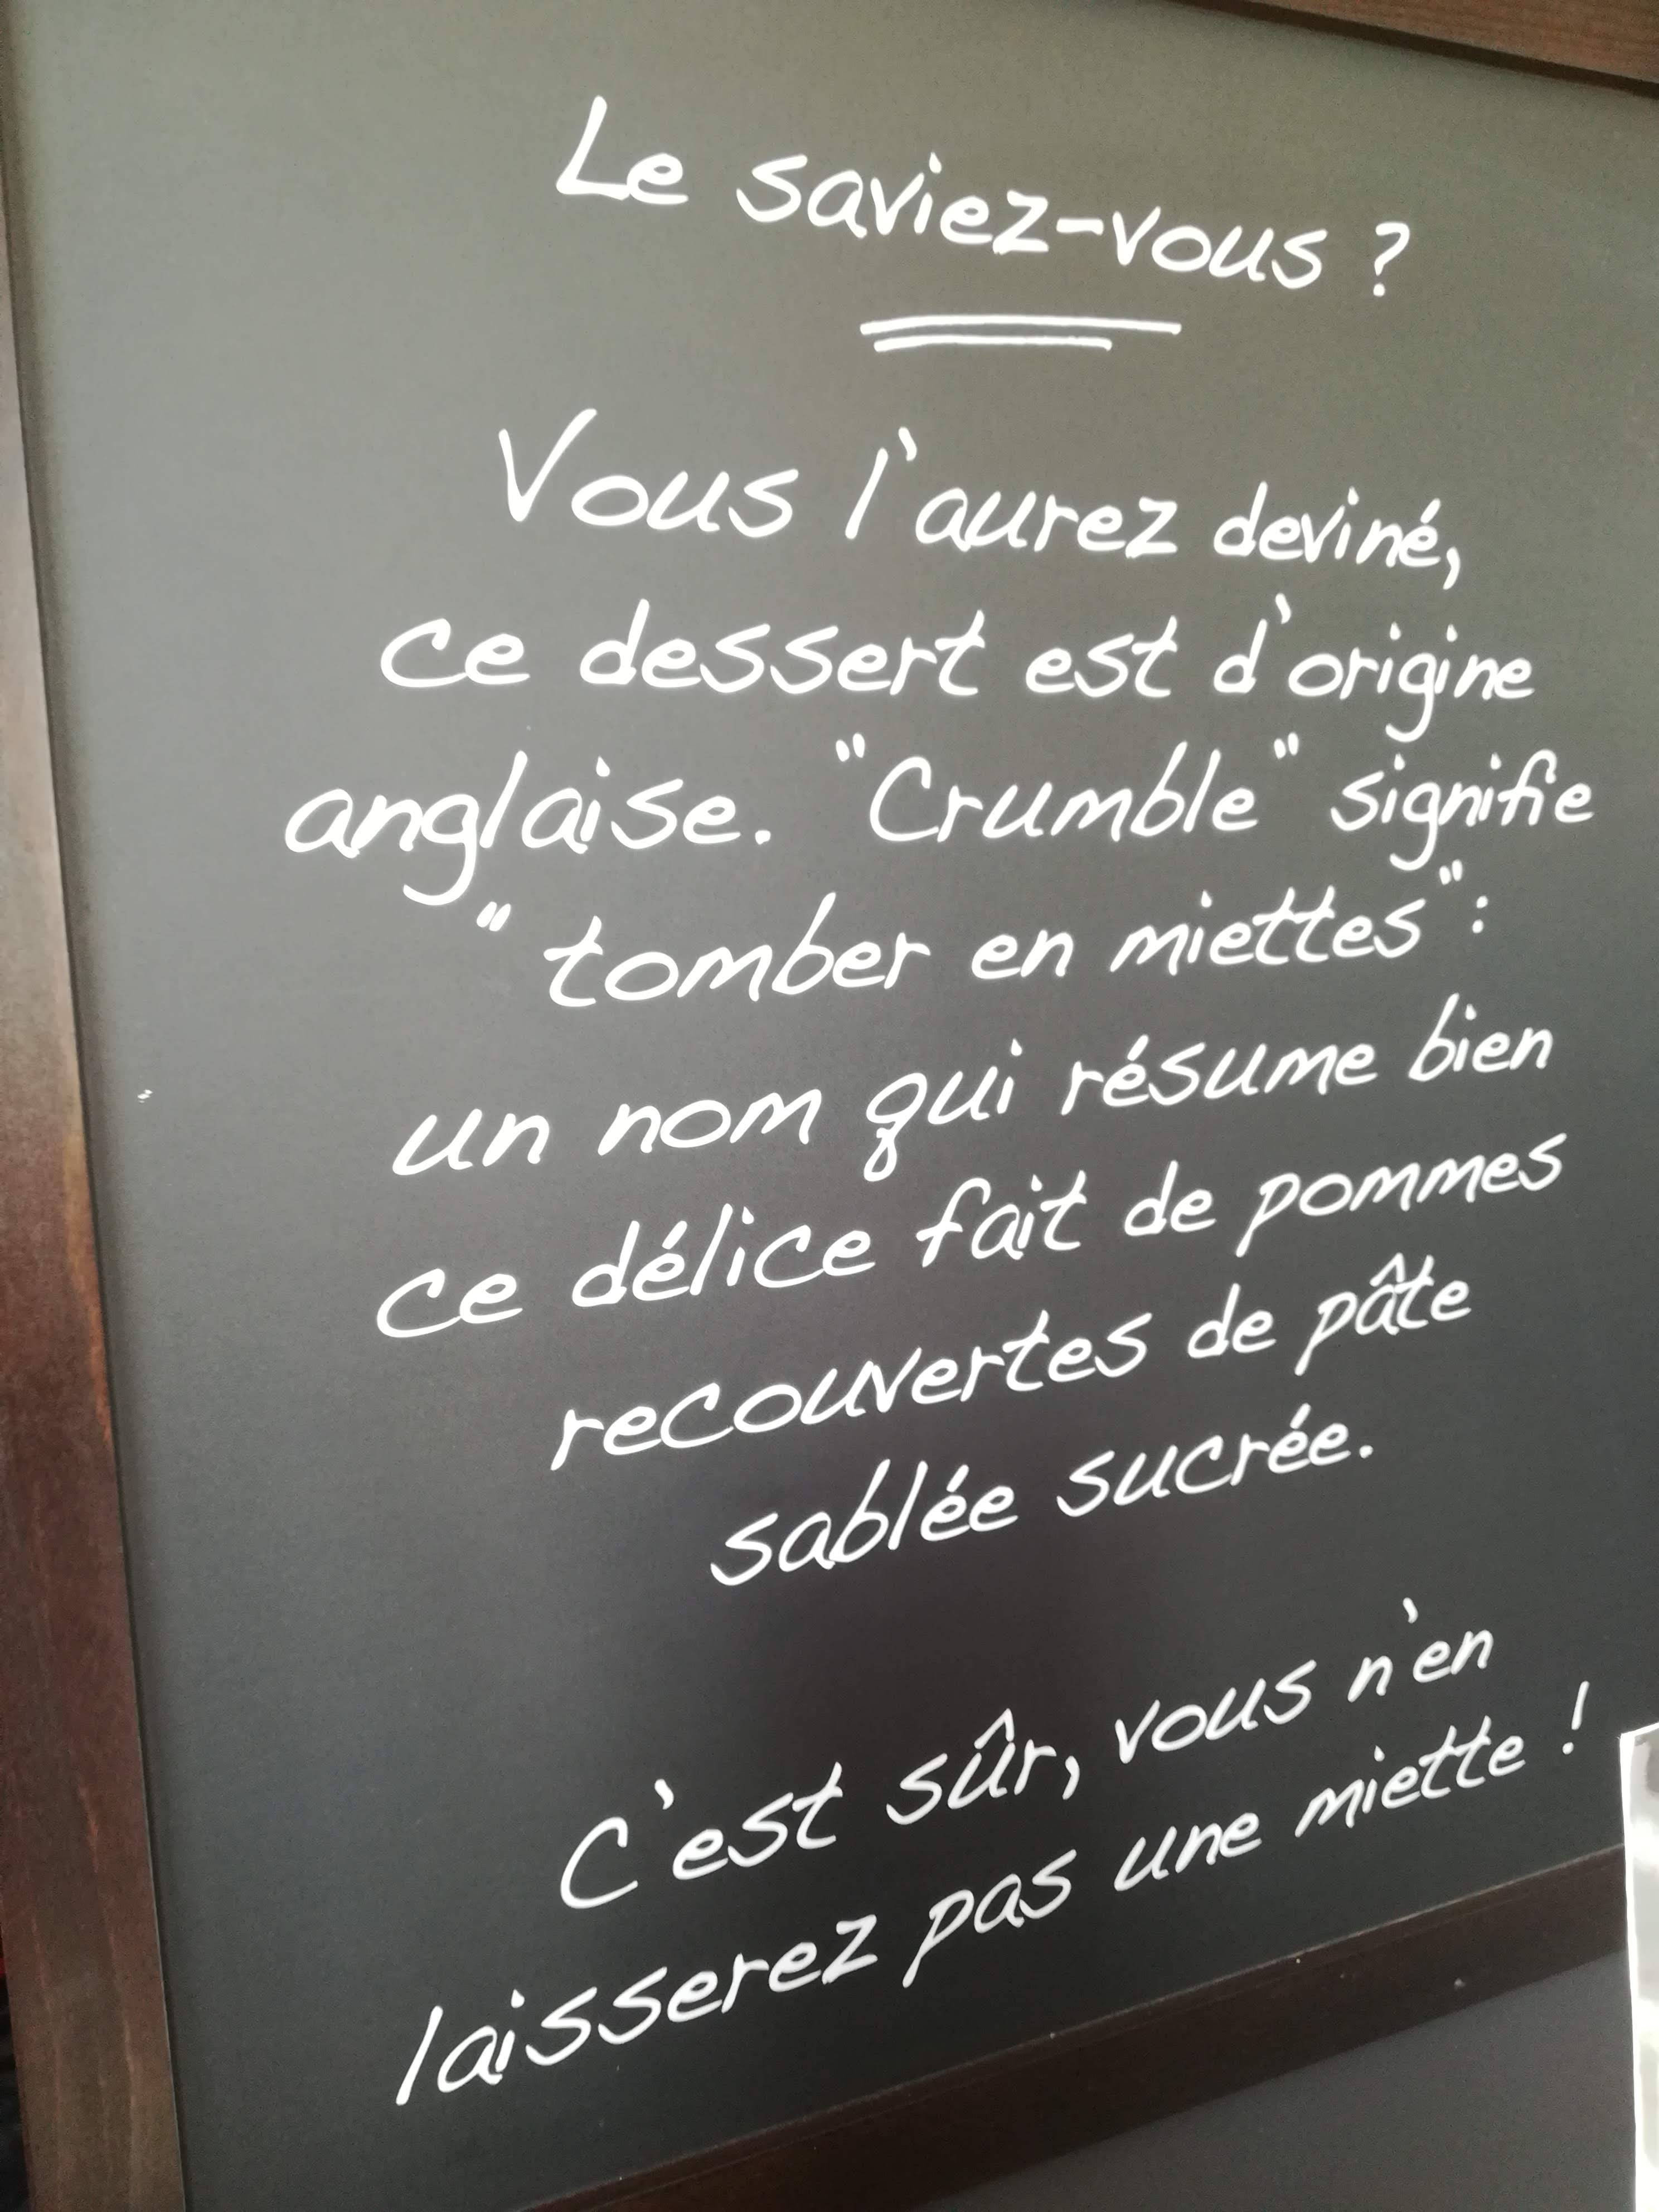 Le saviez-vous ?
Vous l'aurez deviné,
ce dessert est d'origine
anglaise. "Crumble" signifie
"tomber en miettes":
un nom qui résume bien
ce délice fait de pommes
recouvertes de pâte
sablée sucrée.
C'est sûr, vous n'en
laisserez pas une miette !